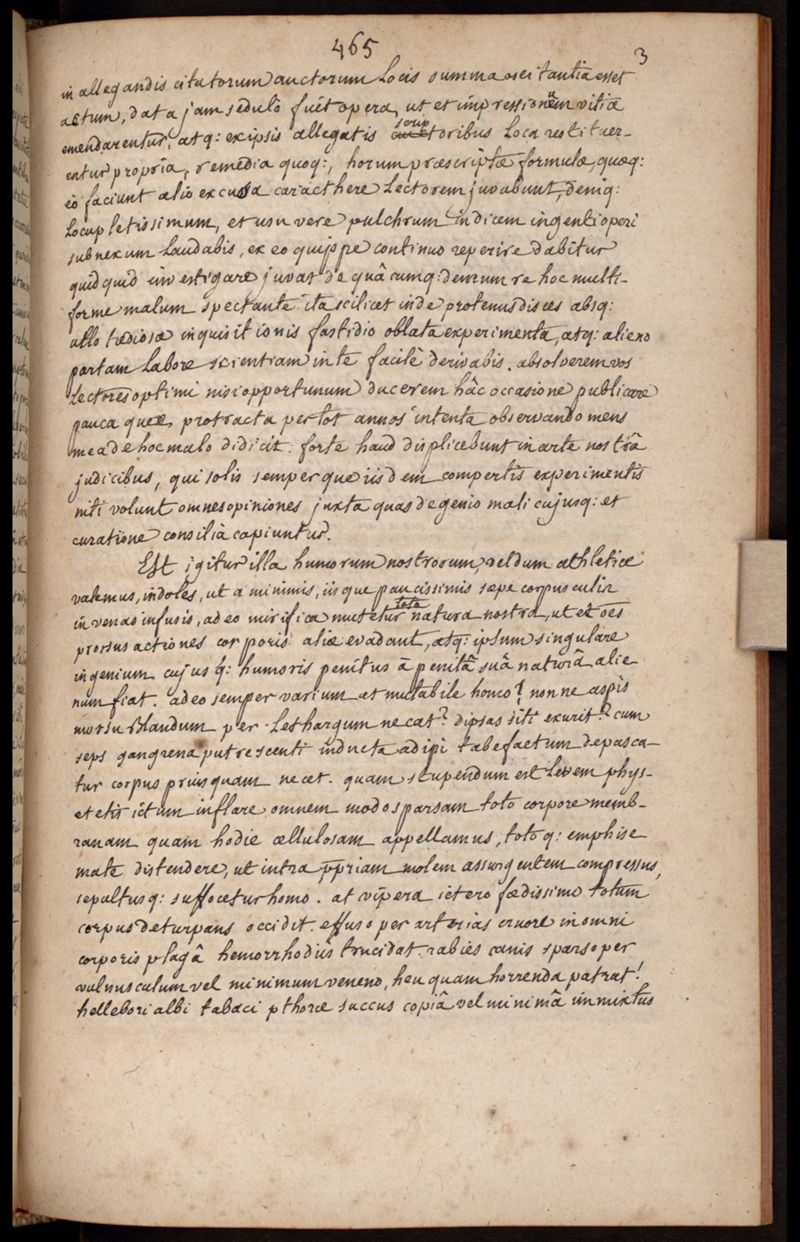 465
3
in allegandis citatorum auctorum Locis summa oscitantia esset
actum, data jam sedulò fuit opera, ut et impressionum vitia
emendarentur, atq: ex ipsis allegatis scriptoribus Loca restituer-
entur propria, remedia quoq:, horum præscriptæ formulæ, quæq:
eò faciunt alio excussa caracthere Lectorem juvabunt, deniq:
Locupletissimum, et usu vere pulchrum indicem ingenti operi
subnexum Laudabis, ex eo quippe continuo reperire dabitur
quidquid investigare juvat de quâcumq: demum re hoc multi-
forme malum spectante ita scilicet inde protenus disces absq:
ullo tædiosæ inquisitionis fastidio oblata experimenta, atq: alieno
partam Labore scientiam in te facilè derivabis. absolverem vos
Lectores optimi nisi opportunum ducerem hâc occasione publicare
pauca quæ, protracta per tot annos intenta observando mens
mea de hoc malo didicit. forte haud displicebunt in arte nostrâ
judicibus, qui solis semperque iisdem compertis experimentis
niti volunt omnes opiniones juxta quas de genio mali cujusq: et
curatione consilia capiuntur.
Est igitur illa humorum nostrorum, vel dum athleticè
valemus, indoles, ut a minimis, iisque paucissimis sepe corpusculis
in venas infusis, adeo mirifica mutetur tota natura nostra, ut et oes
prorsus actiones corporis aliæ evadant, atq: ipsum singulare
ingenium cujusq: humoris penitus â penitâ suâ naturâ alie
num fiat. adeo semper varium et mutabile homo! nonne aspis
morsu blandum per Lethargum necat? dipsas siti exurit? cum
seps gangrena putrescenti inducta adipi tabefactum depasca-
tur corpus priusquam necet. quam stupendum est Levem phys-
eteris ictum inflare omnem modo sparsam toto corpore memb-
ranam quam hodie cellulosam appellamus, totoq: emphise
mate distendere, ut intra ppriam molem assurgentem compressus,
sepultusq: suffocetur homo. at vipera ictero fœdissimo totum
corpus deturpans occidit. effuso per arterias cruore in omni
corporis plagâ hemorrhoüs trucidat. rabies canis sparso per
vulnusculum vel minimum veneno, heu quam horrenda patrat!
hellebori albi tabaci pthoræ succus copiâ vel minimâ inmixtus